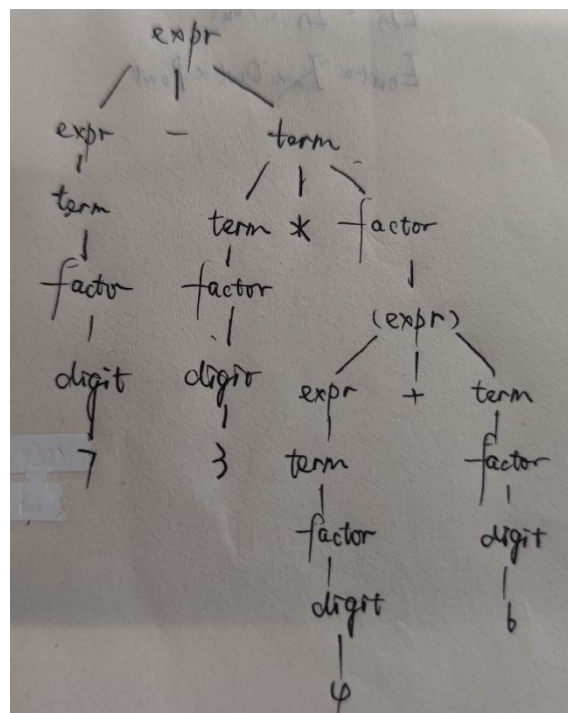 expr
expr - term
term
term * factor
factor
factor
(expr)
digit
digit
expr + term
7
3
term
factor
factor
digit
digit
6
4